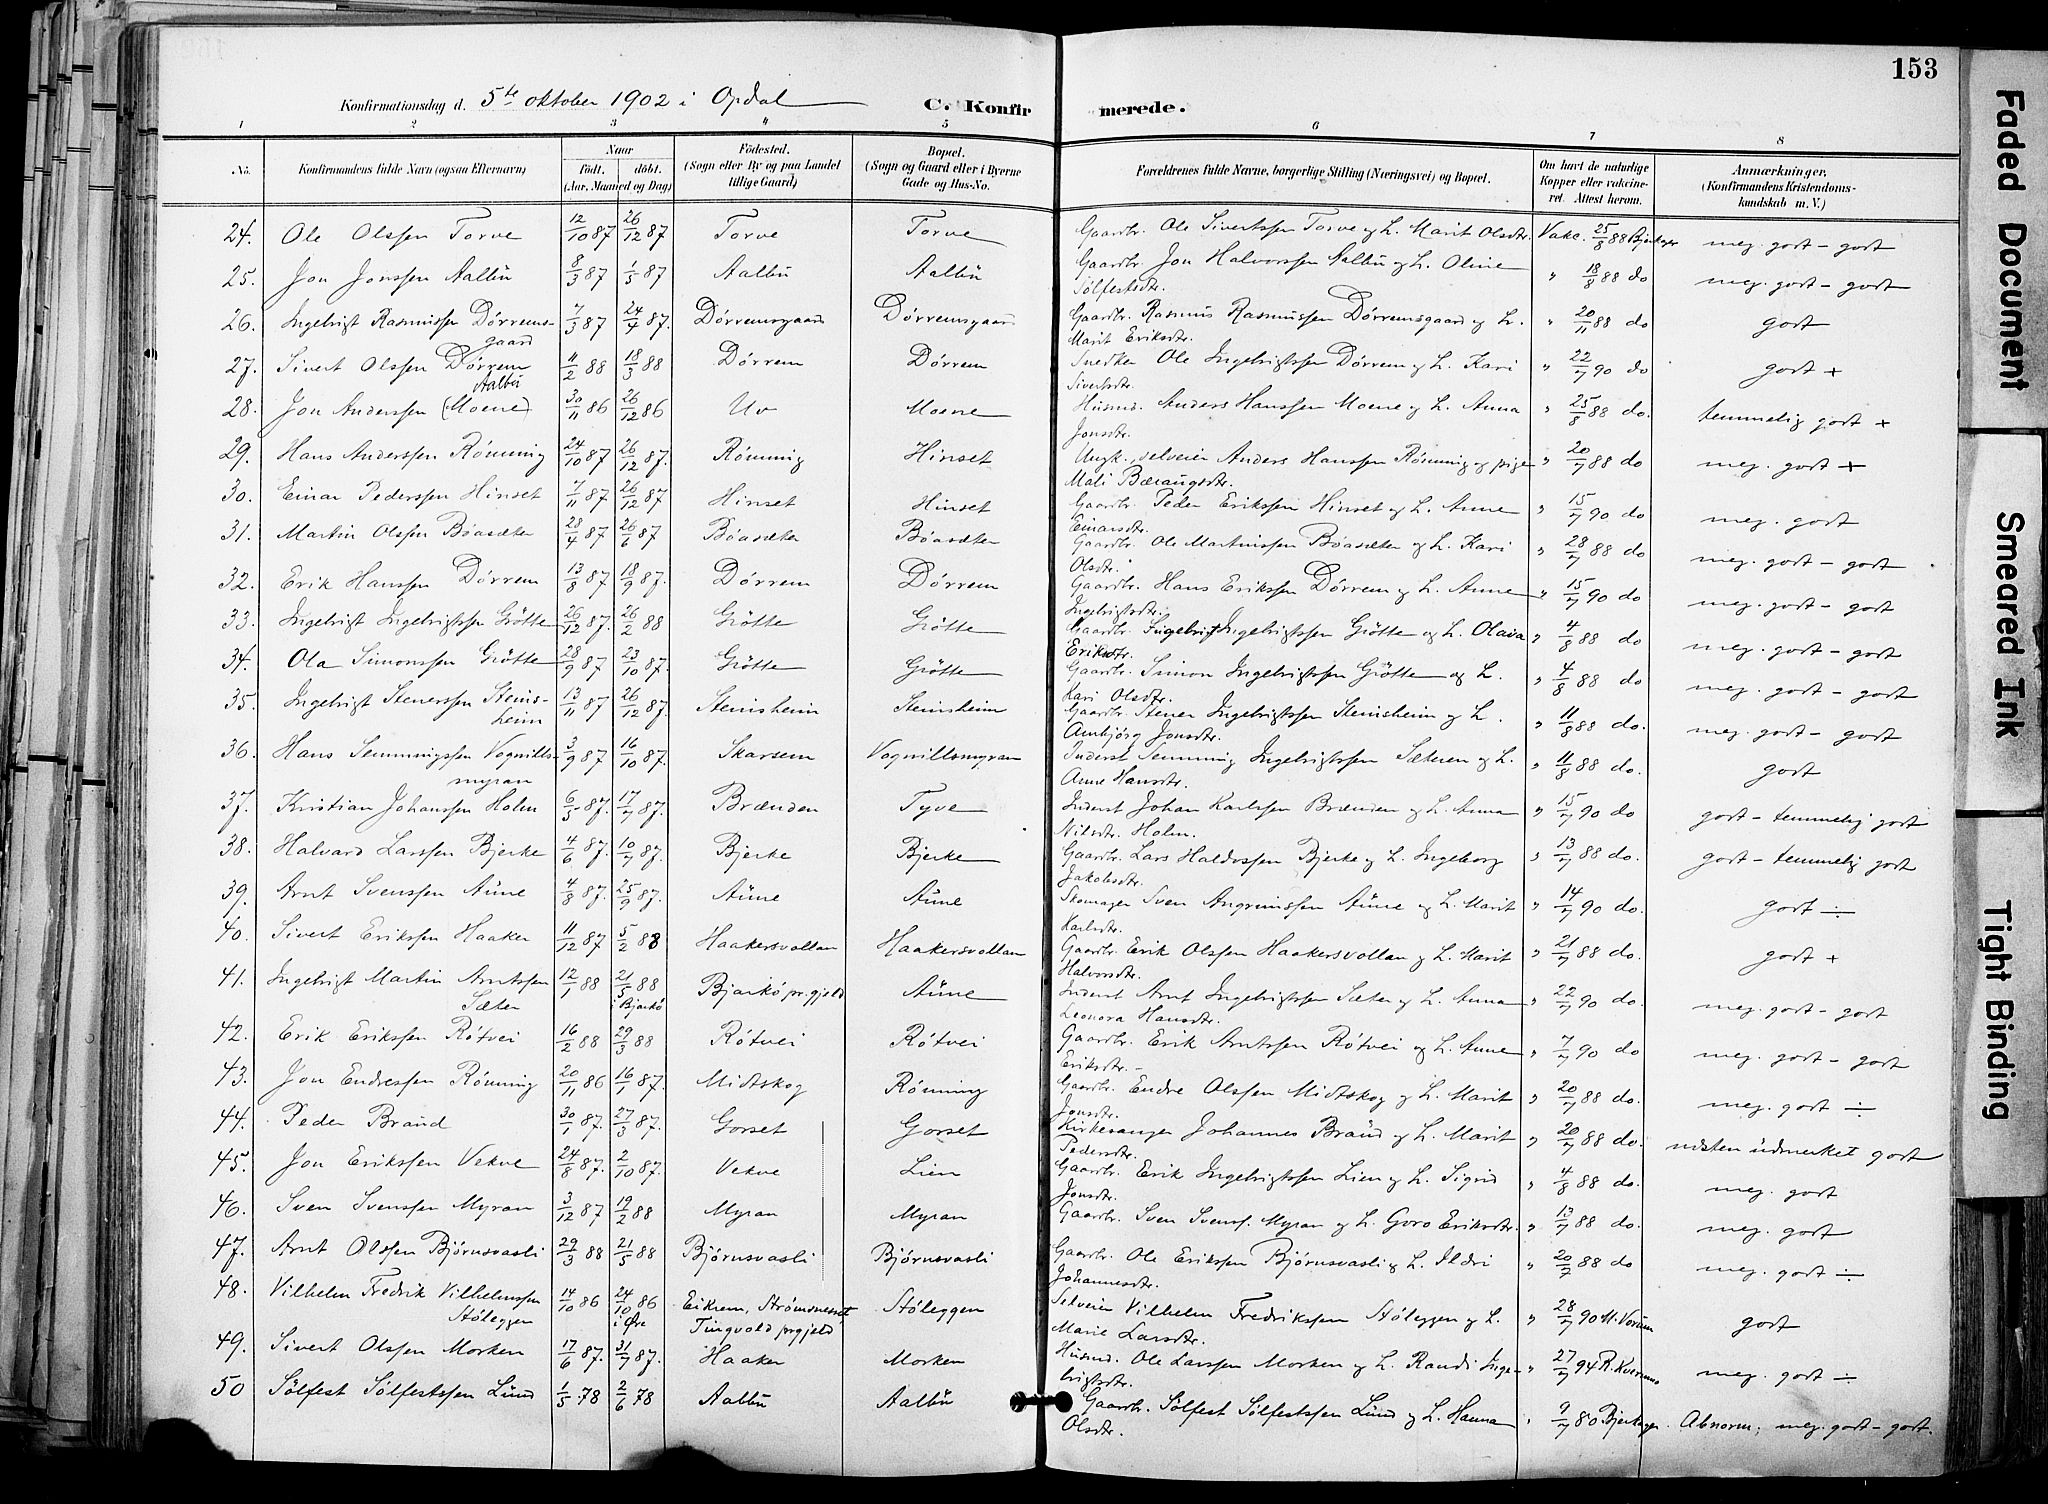 153
Konfirmationsdag d. 5te oktober 1902 i Opdal C. Konfirmerede.
1 2 3 4 5 6 7 8
No. Konfirmandens fulde Navn (ogsaa Efternavn) Naar Födt. döbt. (Aar, Maaned og Dag) Födested. (Sogn eller By og paa Landet tillige Gaard) Bopæl. (Sogn og Gaard eller i Byerne Gade og Hus-No. Forældrenes fulde Navne, borgerlige Stilling (Næringsvei) og Bopæl. Om havt de naturlige Kopper eller vakcineret. Attest herom. Anmærkninger, (Konfirmandens Kristendomskundskab m. V.)
24. Ole Olssen Torve 12/10 87 26/12 87 Torve Torve Gaardbr. Ole Sivertssen Torve og h. Marit Olsdtr. Vakc. 25/8 88 Bjerkager meg. godt - godt
25. Jon Jonssen Aalbü 8/3 87 1/5 87 Aalbü Aalbü Gaardbr. Jon Halvorssen Aalbü og h. Oline Sölfestsdtr. " 18/8 88 do meg. godt - godt
26. Ingebrigt Rasmussen Dörremsgaard 7/3 87 24/4 87. Dörremsgaard Dörremsgaard Gaardbr. Rasmus Rasmussen Dörremsgaard og h. Marit Eriksdtr. " 20/11 88 do godt
27. Sivert Olssen Dörrem 11/2 88 18/3 88 Dörrem Dörrem Snedker Ole Ingebrigtssen Dörrem og h. Kari Sivertsdtr. " 22/7 90 do godt +
28. Jon Anderssen (Moene) Aalbü 30/11 86 26/12 86 Uv Moene Husmd. Anders Hanssen Moene og h. Anna Jonsdtr. " 25/8 88 do. temmelig godt +
29. Hans Anderssen Rönning 24/10 87 26/12 87. Rönning Hinset Ungk., selveier Anders Hanssen Rönning og pige Mali Bæraugsdtr. " 20/7 88 do meg. godt +
30. Einar Pederssen Hinset 7/11 87 26/12 87 Hinset Hinset Gaardbr. Peder Erikssen Hinset og h. Anne Einarsdtr. " 15/7 90 do meg. godt
31. Martin Olssen Böasæter 28/4 87 26/6 87 Böasæter Böasæter Gaardbr. Ole Martinssen Böasæter og h. Kari Olsdtr. " 28/7 88 do meg. godt - godt
32. Erik Hanssen Dörrem 13/8 87 18/9 87. Dörrem Dörrem Gaardbr. Hans Erikssen Dörrem og h. Anne Ingebrigtsdtr. " 15/7 90 do meg. godt - godt
33. Ingebrigt Ingebrigtssen Grötte 26/12 87. 26/2 88 Grötte Grötte Gaardbr. Ingebrigt Ingebrigtssen Grötte og h. Olava Eriksdtr. " 4/8 88 do meg. godt - godt
34. Ola Simonssen Grötte 28/9 87 23/10 87. Grötte Grötte Gaardbr. Simon Ingebrigtssen Grötte og h. Kari Olsdtr. " 4/8 88 do meg. godt - godt
35. Ingebrigt Stenerssen Stensheim 13/11 87 26/12 87. Stensheim Stensheim Gaardbr. Stener Ingebrigtssen Stensheim og h. Ambjörg Jonsdtr. " 11/8 88 do. meg. godt - godt
36. Hans Semmingssen Vognillsmyran 3/9 87 16/10 87. Skarsem Vognillsmyran Inderst Semming Ingebrigtssen Sæteren og h. Anne Hansdtr. " 11/8 88 do. godt
37. Kristian Johanssen Holm 6/5 87. 17/7 87. Brænden Tyve Inderst Johan Karlssen Brænden og h. Anna Nilsdtr. Holm. " 15/7 90 do godt - temmelig godt
38. Halvard Larssen Bjerke 4/6 87. 10/7 87. Bjerke Bjerke Gaardbr. Lars Haldossen Bjerke og h. Ingeborg Jakobsdtr. " 13/7 88 do. godt - temmelig godt
39. Arnt Svenssen Aüne 4/8 87. 25/9 87. Aüne Aüne Skomager Sven Angrimssen Aüne og h. Marit Karlsdtr. " 14/7 90 do. godt ÷
40. Sivert Erikssen Haaker 11/12 87 5/2 88 Haakersvollan Haakersvollan Gaardbr. Erik Olssen Haakersvollan og h. Marit Halvorsdtr. " 21/7 88 do. godt +
41. Ingebrigt Martin Arntssen Sæter 12/1 88 21/5 88 i Bjarkö Bjarkö pr.gjeld Aüne Inderst Arnt Ingebrigtssen Sæter og h. Anna Leonora Hansdtr. " 22/7 90 do. meg. godt - godt
42. Erik Erikssen Rötvei 16/2 88 29/3 88 Rötvei Rötvei Gaardbr. Erik Arntssen Rötvei og h. Anne Eriksdtr. " 7/7 90 do meg. godt - godt
43. Jon Endressen Rönning 20/11 86 16/1 87. Midtskog Rönning Gaardbr. Endre Olssen Midtskog og h. Marit Jonsdtr. " 20/7 88 do. meg. godt ÷
44. Peder Braüd 30/1 87. 27/3 87. Gorset Gorset Kirkesanger Johannes Braüd og h. Marit Pedersdtr. " 20/7 88 do. næsten üdmerket godt
45. Jon Erikssen Vekve 24/8 87. 2/10 87. Vekve Lien Gaardbr. Erik Ingebrigtssen Lien og h. Sigrid Jonsdtr. " 4/8 88 do. meg. godt
46. Sven Svenssen Myran 3/12 87 19/2 88 Myran Myran Gaardbr. Sven Svenss. Myran og h. Goro Eriksdtr. " 13/7 88 do. meg. godt
47. Arnt Olssen Björnsvasli 29/3 88 21/5 88 Björnsvasli Björnsvasli Gaardbr. Ole Erikssen Björnsvasli og h. Ildri Johannesdtr. " 20/7 88 do meg. godt ÷
48. Vilhelm Fredrik Vilhelmssen Stöleggen 14/10 86 24/10 86 i Öre Eikrem, Strömsneset Tingvold pr.gjeld Stöleggen Selveier Vilhelm Fredrikssen Stöleggen og h. Marie Larsdtr. " 28/7 90 M. Vorum godt
49. Sivert Olssen Morken 17/6 87. 31/7 87. Haaker Morken Husmd. Ole Larssen Morken og h. Randi Ingebrigtsdtr. " 27/7 94 R. Kversmo meg. godt ÷
50 Sölfest Sölfestssen Lünd 1/5 78 2/6 78 Aalbü Aalbü Gaardbr. Sölfest Sölfestssen Lünd og h. Hanna Olsdtr. " 9/7 80 Bjerkager. Abnorm; meg. godt - godt.
Faded Document
Smeared Ink
Tight Binding